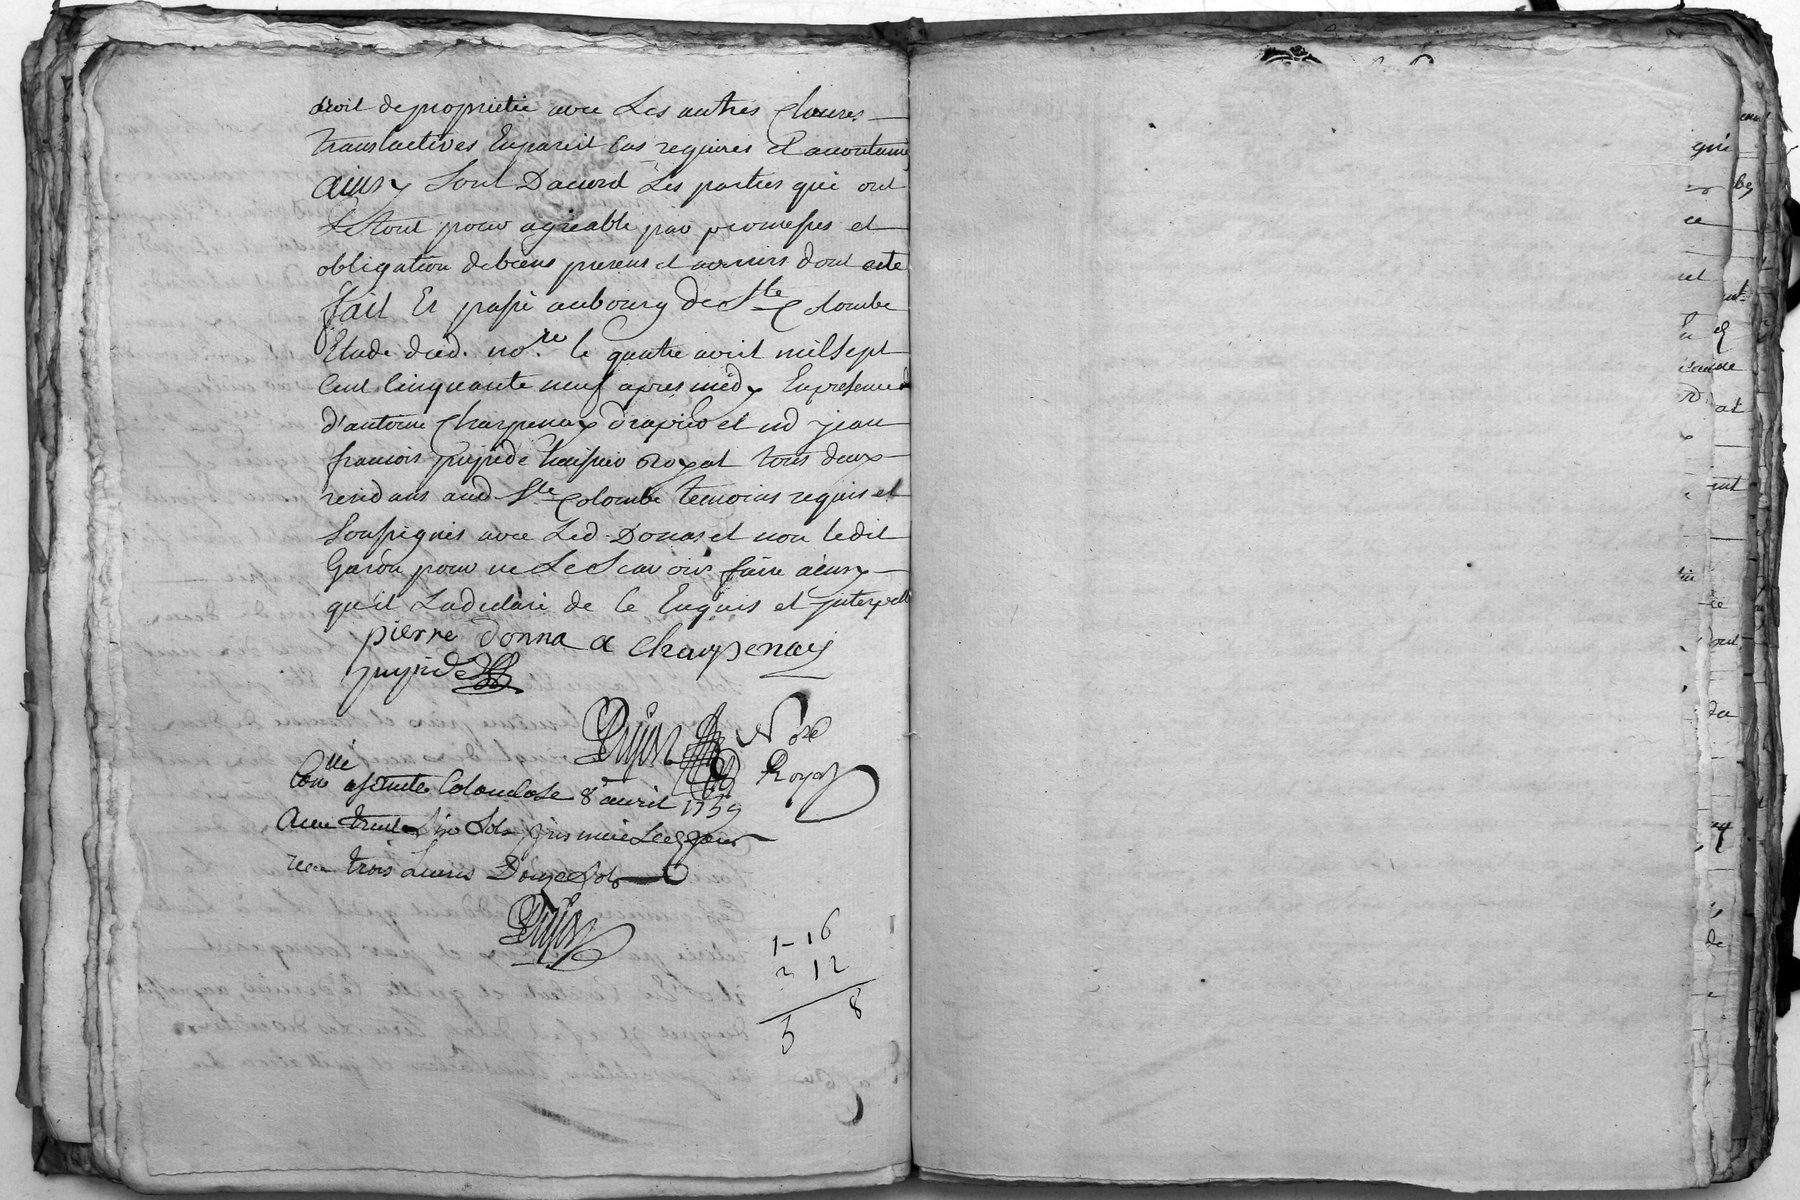 droit de proprietée avec Les autres Clauses
translactives Enpareil Cas requires Et acoutumé
ainsy Sont Dacord Les parties qui ont
Le tout pour agreable par promesses et
obligation debiens presens et avenirs dont acte
fait Et passé aubourg de Ste Colombe
Etude dud. nore le quatre avril mil Sept
Cent Cinquante neuf apres midy Enpresence
d'antoine Charpenay drapier et md jean
francois pupide huissier Royal tous deux
residans aud. Ste Colombe temoins requis et
Soussignés avec Led. Donas et non ledit
Garon pour ne Le Scavoir faire ainsy
qu'il La declaré de Ce Enquis et jnterpellé
pierre donna a Charpenay
pupide
Nore
Royal
Conlle a Ste Colombe Le 8 avril 1759
recu trois Livres Douze Sols
1 - 16
2 12
3 8